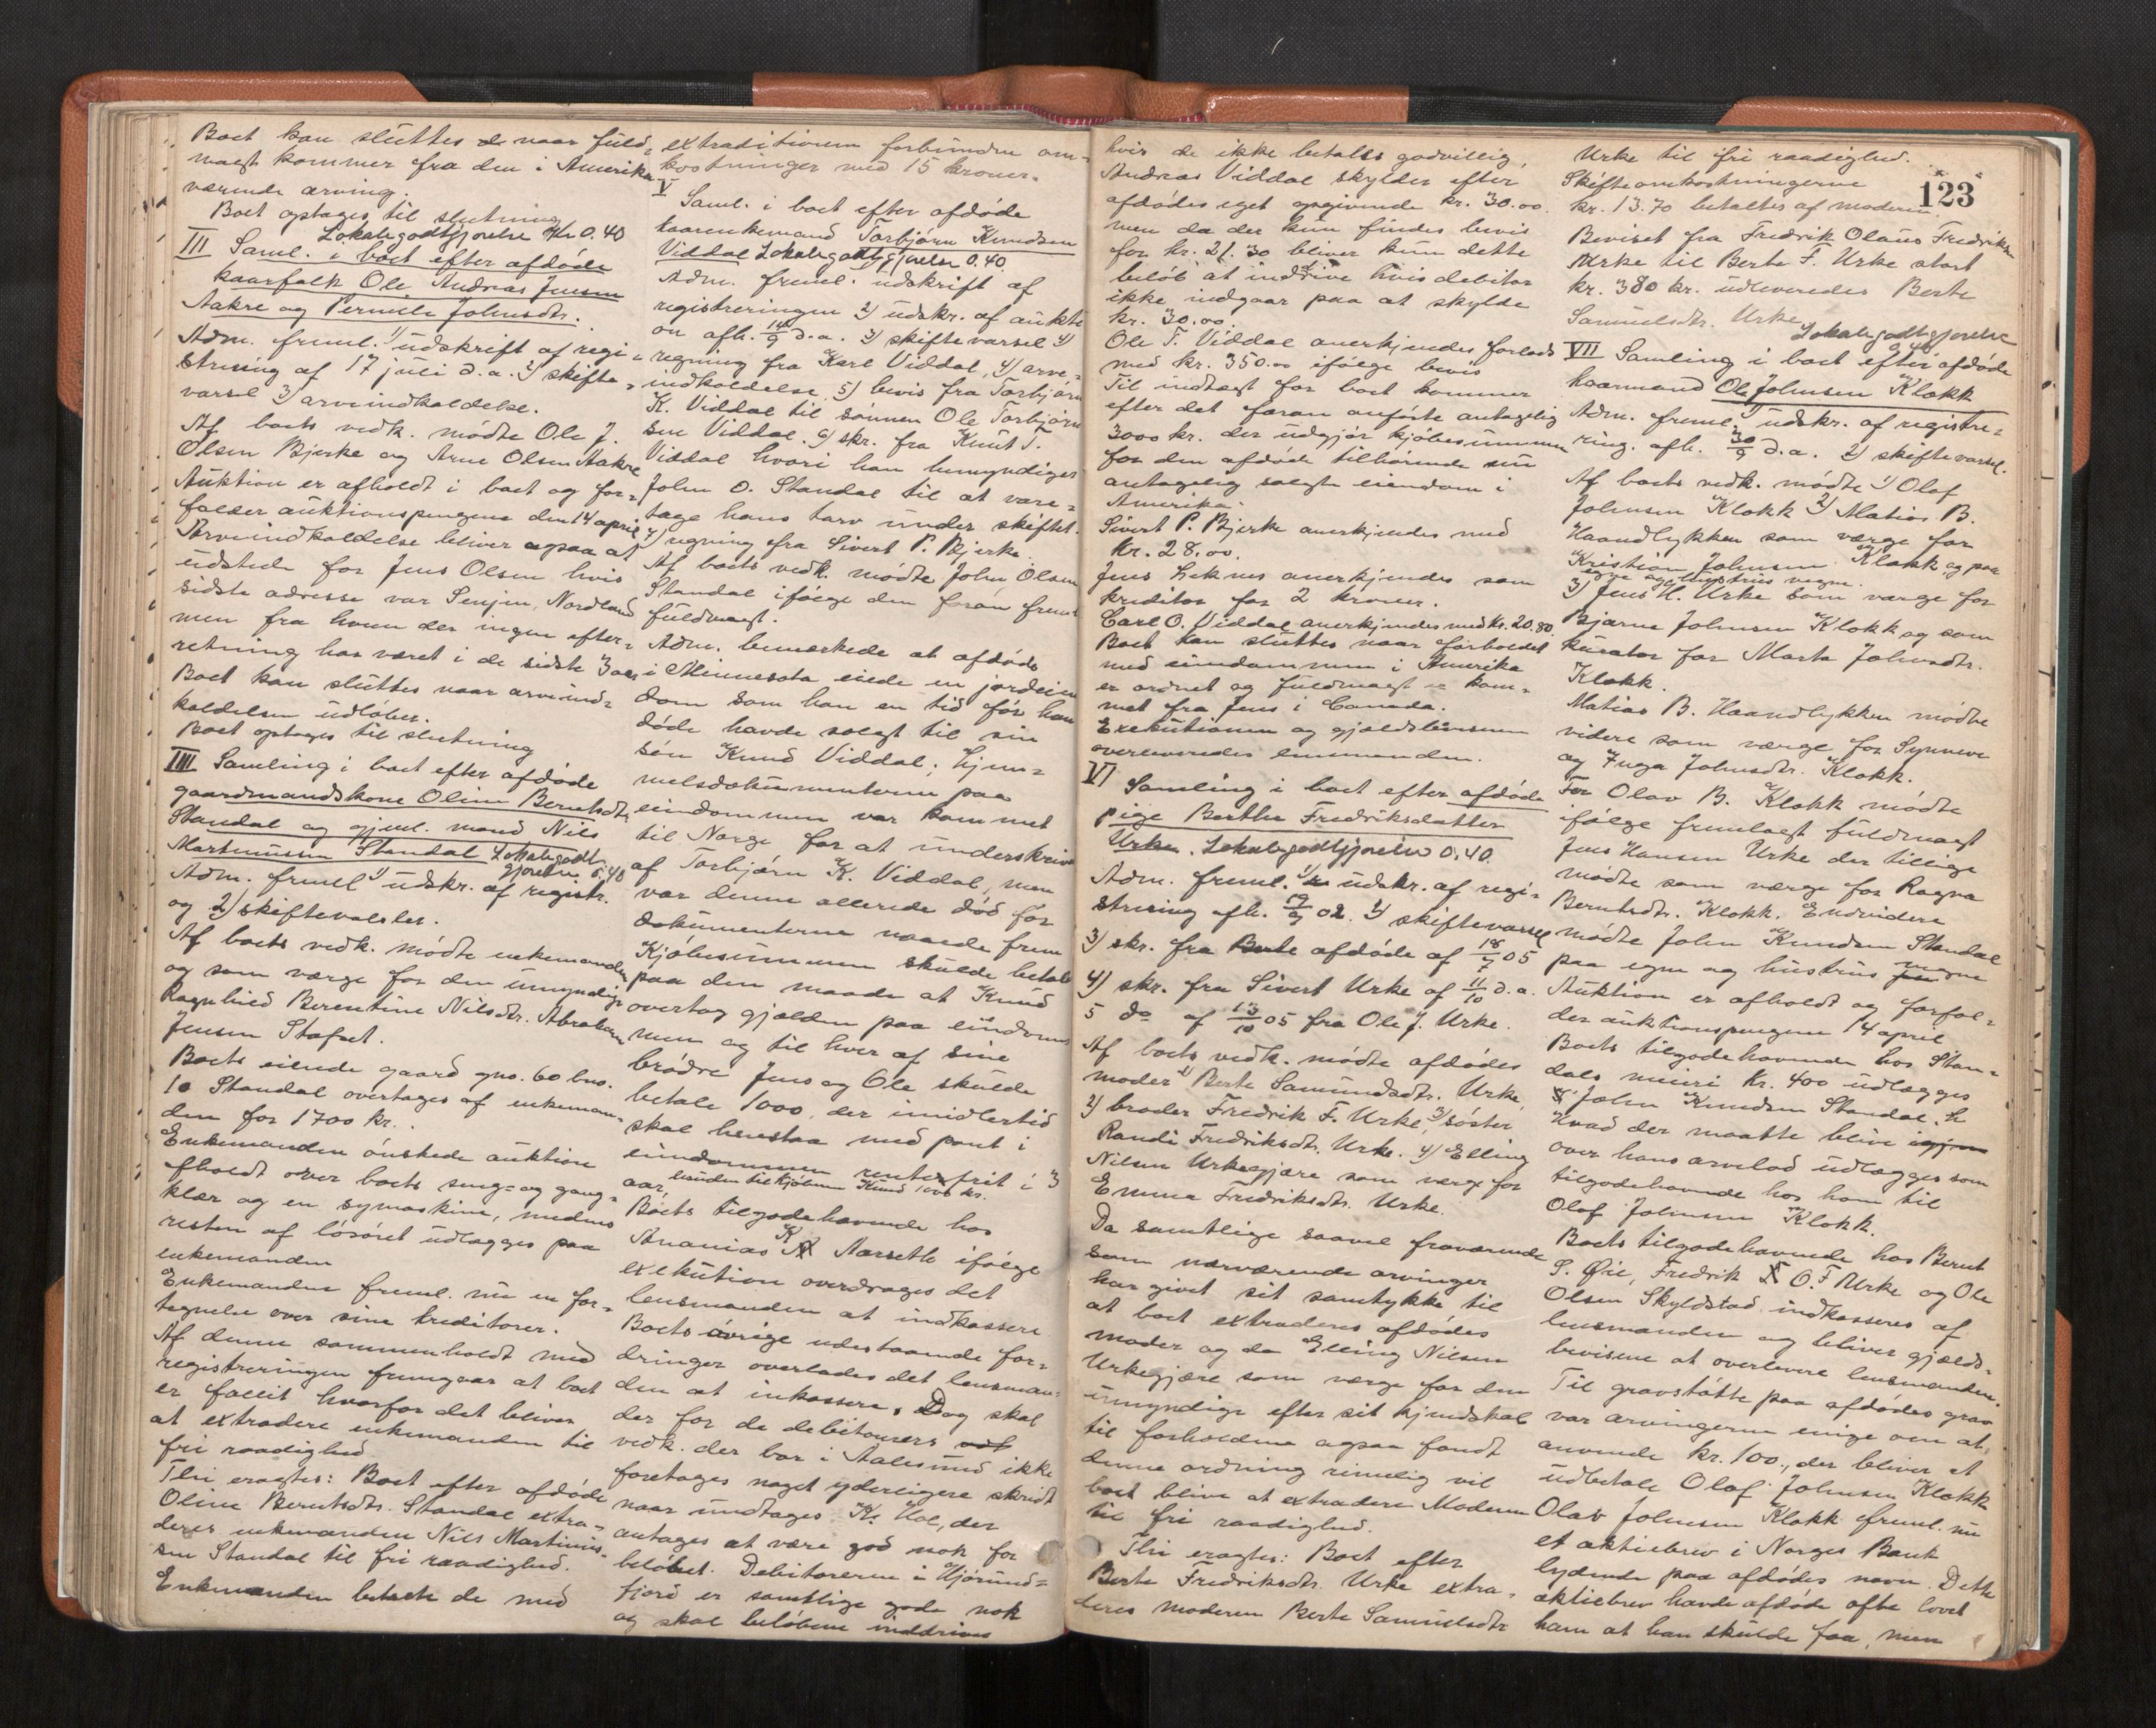 Boet kan sluttes naar fuld-
magt kommer fra den i Amerika
værende arving.
Boet optages til slutning
Lokalegodtgjörelse Kr 0.40
III Saml. i boet efter afdöde
kaarfolk Ole Andreas Jensen
Aakre og Pernille Johnsdtr.
Adm. freml. 1) udskrift af regi-
strering af 17 juli d.a. 2) skifte-
varsel 3) arveindkaldelse.
Af boets vedk. mödte Ole J.
Olsen Bjerke og Arne Olsen Aakre
Auktion er afholdt i boet og for-
falder auktionspengene den 14 april
Arveindkaldelse bliver ogsaa at
udstede for Jens Olsen hvis
sidste adresse var Senjen, Nordland
men fra hvem der ingen efter-
retning har været i de sidste 3 aar
Boet kan sluttes naar arveind-
kaldelsen udlöber.
Boet optages til slutning
IIII Samling i boet efter afdöde
gaardmandskone Oline Berntsdtr.
Standal og gjenl. mand Nils
Martinussen Standal Lokalegodt-
gjörelse 0.40
Adm. freml 1) udskr. af registr.
og 2) skiftevarsler.
Af boets vedk. mödte enkemanden
og som værge for den umyndige
Ragnhild Berentine Nilsdtr. Abraham
Jensen Stafset.
Boets eiende gaard gno. 60 bno.
10 Standal overtages af enkeman-
den for 1700 kr.
Enkemanden önskede auktion
afholdt over boets seng- og gang-
klær og en symaskine, medens
resten af lösöret udlægges paa
enkemanden
Enkemanden freml. nu en for-
tegnelse over sine kreditorer.
Af denne sammenholdt med
registreringen fremgaar at boet
er fallit hvorfor det bliver
at extradere enkemanden til
fri raadighed
Thi eragtes: Boet efter afdöde
Oline Berntsdtr. Standal extra-
deres enkemanden Nils Martinus-
sen Standal til fri raadighed.
Enkemanden betalte de med
extraditionen forbundne om-
kostninger med 15 kroner.
V Saml. i boet efter afdöde
kaarenkemand Torbjörn Knudsen
Viddal Lokalegodtgjörelse 0.40.
Adm. freml. udskrift af
registreringen 2) udskr. af aukti
on afh. 14/9 d.a. 3) skiftevarsel 4)
regning fra Karl Viddal, 4) arve-
indkaldelse, 5) bevis fra Torbjörn
K. Viddal til sönnen Ole Torbjörn
sen Viddal. 6) skr. fra Knut T.
Viddal hvori han bemyndiger
John O. Standal til at vare-
tage hans tarv under skiftet.
7) regning fra Sivert P. Bjerke
Af boets vedk. mödte John Olsen
Standal ifölge den foran freml
fuldmagt.
Adm. bemærkede at afdöde
i Minnesota eiede en jordeien
dom som han en tid för han
döde havde solgt til sin
sön Knud Viddal; hjem-
melsdokumenterne paa
eiendommen var kommet
til Norge for at underskrives
af Torbjörn K. Viddal, men
var denne allerede död för
dokumenterne naaede frem
Kjöbesummen skulde betales
paa den maade at Knud
overtog gjælden paa eiendom
men og til hver af sine
brödre Jens og Ole skulde
betale 1000, der imidlertid
skal henstaa med pant i
eiendommen rentefrit i 3
aar, desuden tilkjöbmm Knud 1000 kr.
Boets tilgodehavende hos
Ananias K Aarseth ifölge
exekution overdrages det
lensmanden at indkassere.
Boets övrige udestaaende for-
dringer overlades det lensman-
den at inkassere. Dog skal
der for de debitorers
vedk. der bor i Aalesund ikke
foretages noget yderligere skridt
naar undtages K. Hol, der
antages at være god nok for
belöbet. Debitorerne i Hjörund-
fjord er samtlige gode nok
og skal belöbene inddrives
123
hvis de ikke betales godvillig.
Andreas Viddal skylder efter
afdödes eget opgivende kr. 30.00.
men da der kun findes bevis
for kr. 21.30 bliver kun dette
belöb at inddrive hvis debitor
ikke indgaar paa at skylde
kr. 30.00.
Ole T. Viddal anerkjendes forlods
med kr. 350.00 ifölge bevis
Til indtægt for boet kommer
efter det foran anförte antagelig
3000 kr. der udgjör kjöbesummen
for den afdöde tilhörende nu
antagelig solgte eiendom i
Amerika.
Sivert P. Bjerke anerkjendes med
kr. 28.00.
Jens Leknes anerkjendes som
kreditor for 2 kroner.
Carl O. Viddal anerkjendes med kr. 20.80.
Boet kan sluttes naar forholdet
med eiendommen i Amerika
er ordnet og fuldmagt kom-
met fra Jens i Canada.
Exekutionen og gjældsbevisene
overleveredes lensmanden.
VI Samling i boet efter afdöde
pige Berthe Fredriksdatter
Urke. Lokalegodtgjörelse 0.40.
Adm. freml. 1) udskr. af regi-
strering afh. 19/9 02. 2) skiftevarsel
3) skr. fra afdöde af 18/7 05
4) skr. fra Sivert Urke af 11/10 d.a.
5 do af 13/10 05 fra Ole J. Urke.
Af boets vedk. mödte afdödes
moder 1) Berte Samundsdtr. Urke,
2) broder Fredrik F. Urke, 3) söster
Randi Fredriksdtr. Urke. 4) Elling
Nilsen Urkegjære som værge for
Emma Fredriksdtr. Urke.
Da samtlige saavel fraværende
som nærværende arvinger
har givet sit samtykke til
at boet extraderes afdödes
moder og da Elling Nilsen
Urkegjære som værge for den
umyndige efter sit kjendskab
til forholdene ogsaa fandt
denne ordning rimelig vil
boet blive at extradere Moderen
til fri raadighed.
Thi eragtes: Boet efter
Berte Fredriksdtr. Urke extra-
deres moderen Berte Samuelsdtr
Urke til fri raadighed.
Skifteomkostningerne
kr. 13.70 betaltes af moderen.
Beviset fra Fredrik Olaus Fredriksen
Urke til Berte F. Urke stort
kr. 380 kr. udleveredes Berte
Samuelsdtr. Urke
Lokalegodtgjörelse
0.40
VII Samling i boet efter afdöde
kaarmand Ole Johnsen Klokk
Adm. freml. 1) udskr. af registre-
ring. afh. 30/9 d.a. 2) skiftevarsel.
Af boets vedk. mödte 1) Olaf
Johnsen Klokk 2) Matias B.
Haandlykken som værge for
Kristian Johnsen Klokk og paa
egne og hustrus vegne.
3) Jens H. Urke som værge for
Bjarne Johnsen Klokk og som
kurator for Marta Johnsdtr.
Klokk.
Matias B. Haandlykken mödte
videre som værge for Synneve
og Inga Johnsdtr. Klokk.
For Olav B. Klokk mödte
ifölge fremlagt fuldmagt
Jens Hansen Urke der tillige
mödte som værge for Ragna
Berntsdtr. Klokk. Endvidere
mödte John Knudsen Standal
paa egne og hustrus vegne
Auktion er afholdt og forfal-
der auktionspengene 14 april
Boets tilgodehavende hos Stan-
dals meieri Kr. 400 udlægges
John Knudsen Standal.
Hvad der maatte blive
over hans arvelod udlægges som
tilgodehavende hos ham til
Olaf Johnsen Klokk.
Boets tilgodehavende hos Bernt
S. Öie, Fredrik O. F. Urke og Ole
Olsen Skyldstad indkasseres af
lensmanden og bliver gjælds-
bevisene at overlevere lensmanden.
Til gravstötte paa afdödes grav
var arvingerne enige om at
anvende kr. 100., der bliver at
udbetale Olaf Johnsen Klokk
Olav Johnsen Klokk freml. nu
et aktiebrev i Norges Bank
lydende paa afdödes navn. Dette
aktiebrev havde afdöde ofte lovet
ham at han skulde faa, men